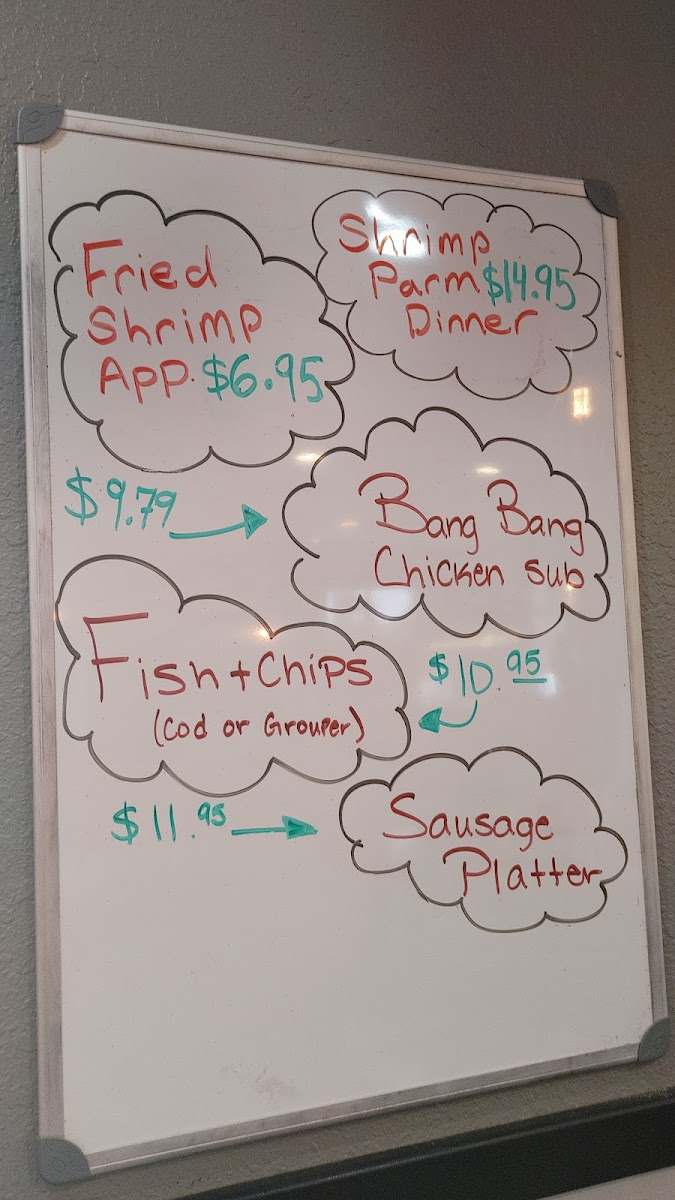 Fried
Shrimp
App. $6.95
Shrimp
Parm $14.95
Dinner
$9.79
Bang Bang
Chicken sub
Fish + Chips
(Cod or Grouper)
$10.95
$11.95
Sausage
Platter